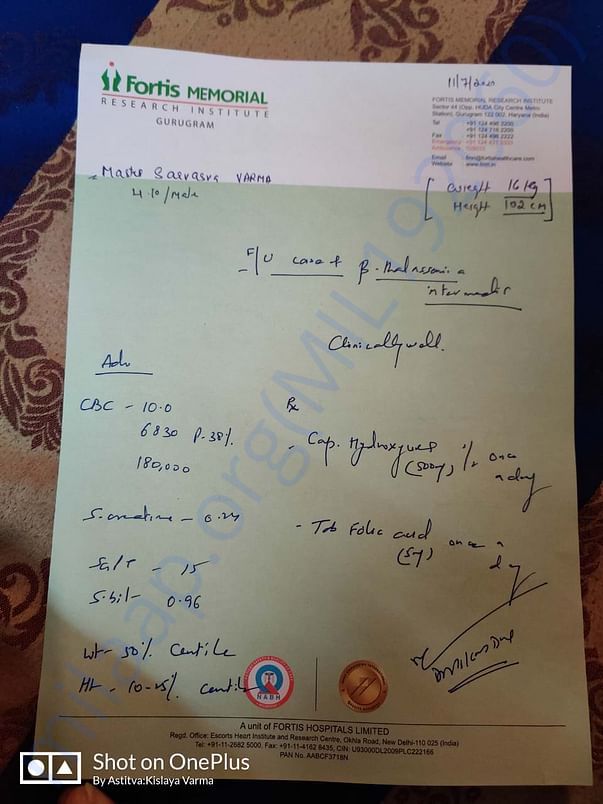 Fortis MEMORIAL
RESEARCH INSTITUTE
GURUGRAM
11/7/2020
FORTIS MEMORIAL RESEARCH INSTITUTE
Sector 44 (Opp. HUDA City Centre Metro
Station), Gurugram 122 002, Haryana (India)
Tel : +91 124 496 2200
+91 124 716 2200
Fax : +91 124 496 2222
Emergency
Ambulance
Email
Website
Master VARMA
/Male
[Weight 16 kg
Height 102 cm]
F/U case of β-thalassemia
intermedia
Clinically well.
Adv
CBC - 10.0
6830 P-38%
180,000
S. creatine - 0.24
15
S. bil - 0.96
wt - 50% Centile
Ht - 10-25% centile
Rx
- Cap. Hydroxyurea
(500mg) once
a day
- Tab Folic acid once a
(5mg) day
NABH
A unit of FORTIS HOSPITALS LIMITED
Regd. Office: Escorts Heart Institute and Research Centre, Okhla Road, New Delhi-110 025 (India)
Tel: +91-11-2682 5000, Fax: +91-11-4162 8435, CIN: U93000DL2009PLC222166
PAN No. AABCF3718N
milaap.org(MIL1920860)
Shot on OnePlus
By Astitva:Kislaya Varma